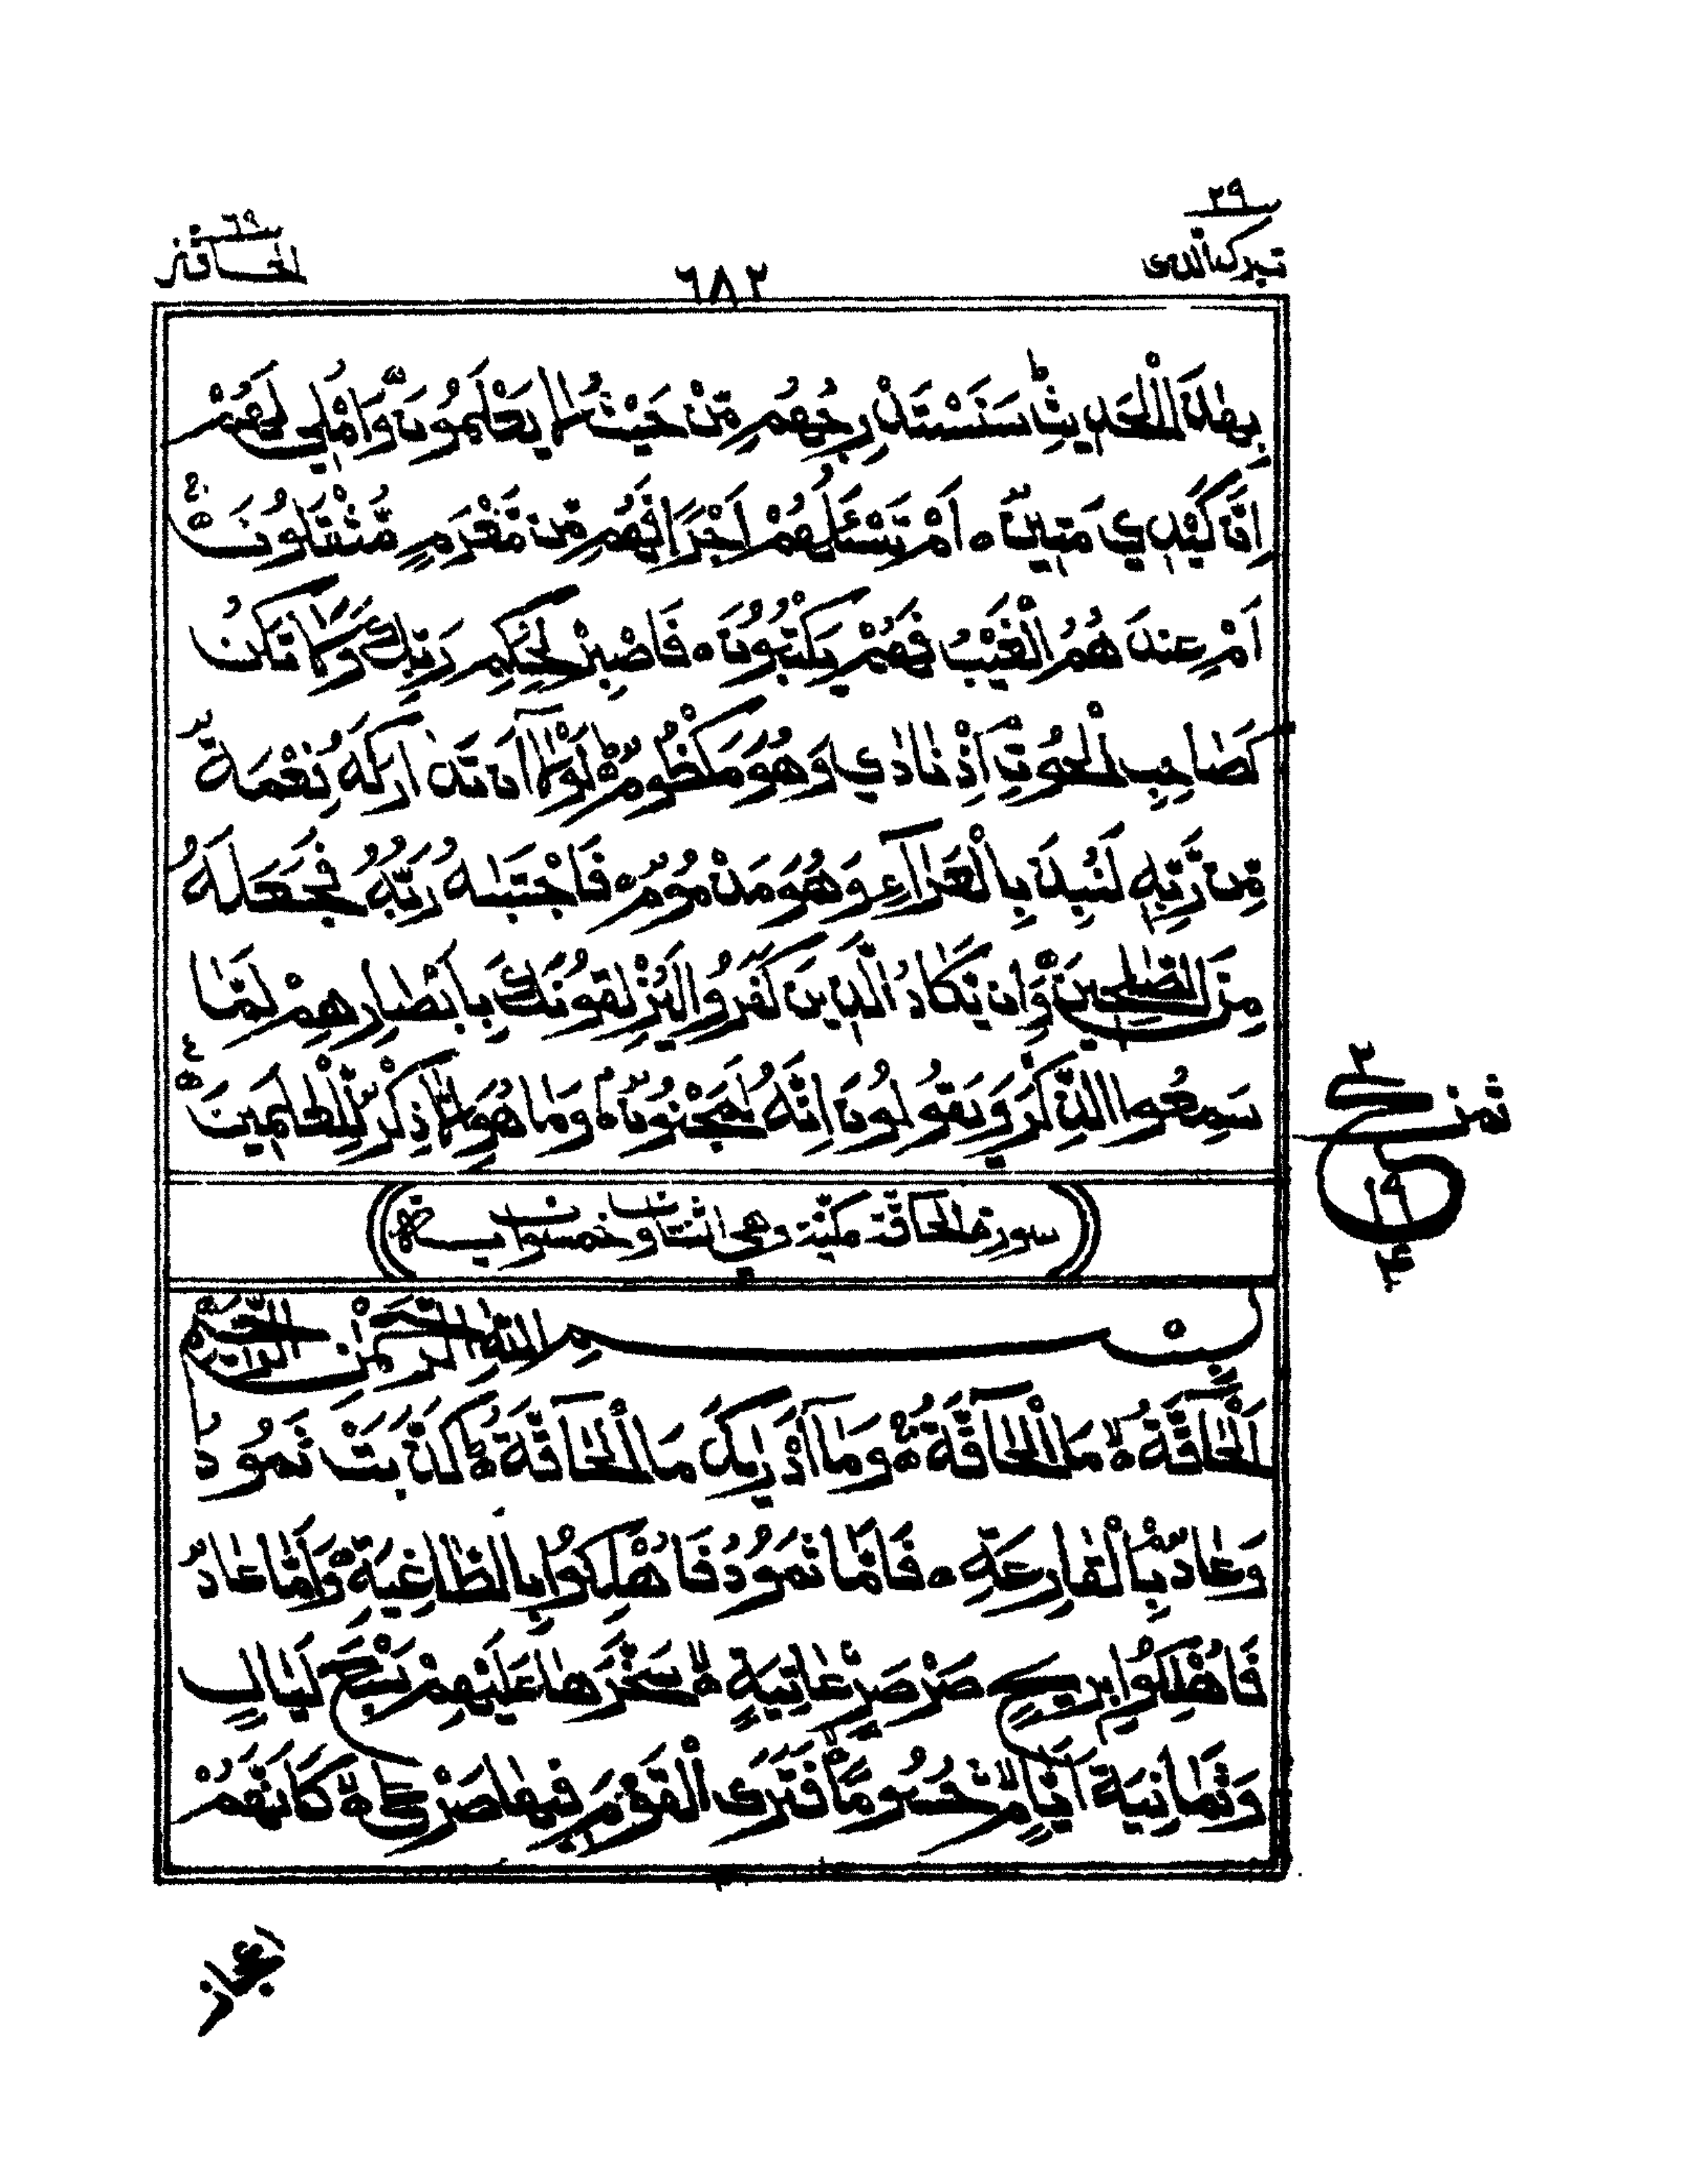 ٢٩
تبرك الذى
٦٨٢
٦٩
الحاقة
بِهٰذَا الْحَدِيْثِ ؕ سَنَسْتَدْرِجُهُمْ مِّنْ حَيْثُ لَا يَعْلَمُوْنَ ۙ وَاُمْلِيْ لَهُمْ
اِنَّ كَيْدِيْ مَتِيْنٌ ۝ اَمْ تَسْـَٔلُهُمْ اَجْرًا فَهُمْ مِّنْ مَّغْرَمٍ مُّثْقَلُوْنَ ۝
اَمْ عِنْدَهُمُ الْغَيْبُ فَهُمْ يَكْتُبُوْنَ ۝ فَاصْبِرْ لِحُكْمِ رَبِّكَ وَلَا تَكُنْ
كَصَاحِبِ الْحُوْتِ اِذْ نَادٰي وَهُوَ مَكْظُوْمٌ ؕ لَوْلَآ اَنْ تَدٰرَكَهٗ نِعْمَةٌ
مِّنْ رَّبِّهٖ لَنُبِذَ بِالْعَرَآءِ وَهُوَ مَذْمُوْمٌ ۝ فَاجْتَبٰىهُ رَبُّهٗ فَجَعَلَهٗ
مِنَ الصّٰلِحِيْنَ ۝ وَاِنْ يَّكَادُ الَّذِيْنَ كَفَرُوْا لَيُزْلِقُوْنَكَ بِاَبْصَارِهِمْ لَمَّا
سَمِعُوا الذِّكْرَ وَيَقُوْلُوْنَ اِنَّهٗ لَمَجْنُوْنٌ ۝ وَمَا هُوَ اِلَّا ذِكْرٌ لِّلْعٰلَمِيْنَ ۝
ثمن
٢
ع
١٩
٤
سورة الحاقة مكية وهي اثنتان وخمسون اٰية
بِسْمِ اللّٰهِ الرَّحْمٰنِ الرَّحِيْمِ
اَلْحَآقَّةُ ۝ مَا الْحَآقَّةُ ۝ وَمَآ اَدْرٰىكَ مَا الْحَآقَّةُ ۝ كَذَّبَتْ ثَمُوْدُ
وَعَادٌۢ بِالْقَارِعَةِ ۝ فَاَمَّا ثَمُوْدُ فَاُهْلِكُوْا بِالطَّاغِيَةِ ۝ وَاَمَّا عَادٌ
فَاُهْلِكُوْا بِرِيْحٍ صَرْصَرٍ عَاتِيَةٍ ۝ سَخَّرَهَا عَلَيْهِمْ سَبْعَ لَيَالٍ
وَّثَمَانِيَةَ اَيَّامٍ حُسُوْمًا فَتَرَى الْقَوْمَ فِيْهَا صَرْعٰى كَاَنَّهُمْ
اعجاز